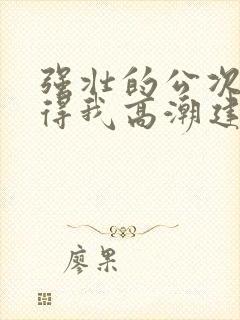 强壮的公次
得我高潮连
廖果